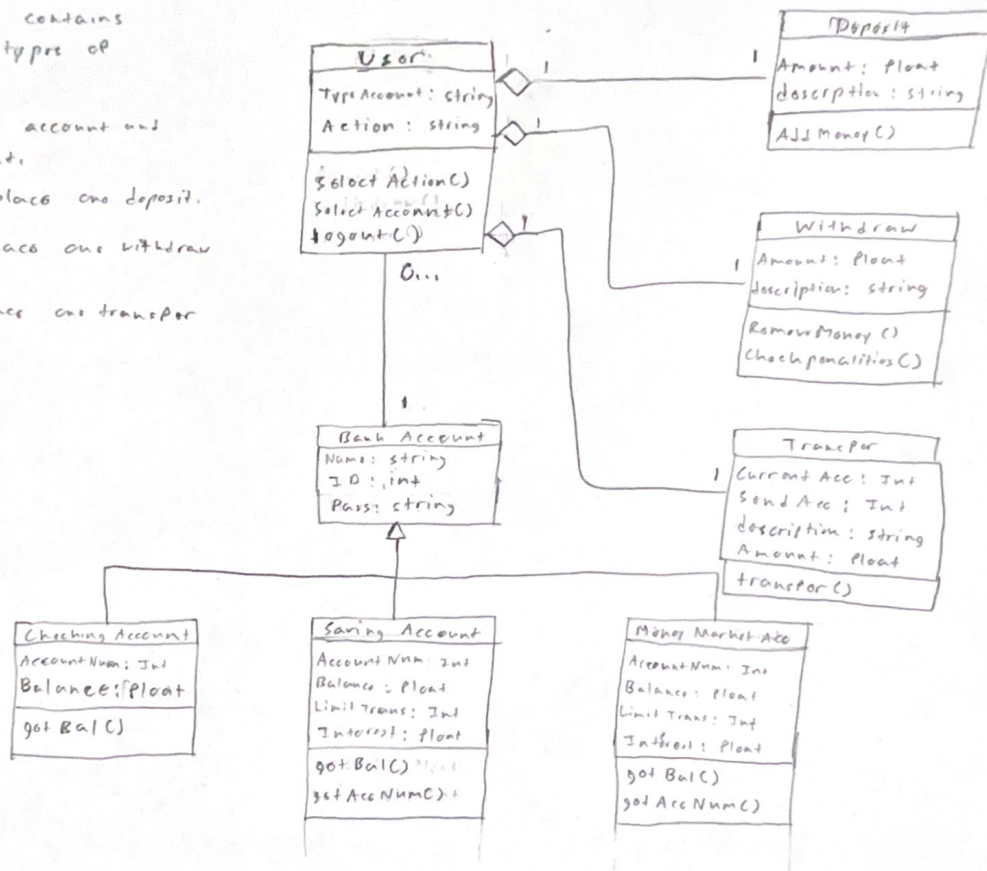 contains
types of
account and
place one deposit.
one withdraw
one transfer
User
Type Account : string
Action : string
Select Action()
Select Account()
Logout()
1
1
Deposit
Amount : float
description : string
Add Money()
1
1
Withdraw
Amount : float
description : string
Remove Money ()
Check penalities()
1
Transfer
Current Acc : Int
Send Acc : Int
description : string
Amount : float
transfer()
0...
1
Bank Account
Name : string
ID : int
Pass : string
Checking Account
Account Num : Int
Balance : float
get Bal()
Saving Account
Account Num : Int
Balance : float
Limit Trans : Int
Interest : float
get Bal()
get Acc Num()
Money Market Acc
Account Num : Int
Balance : float
Limit Trans : Int
Interest : float
get Bal()
get Acc Num()